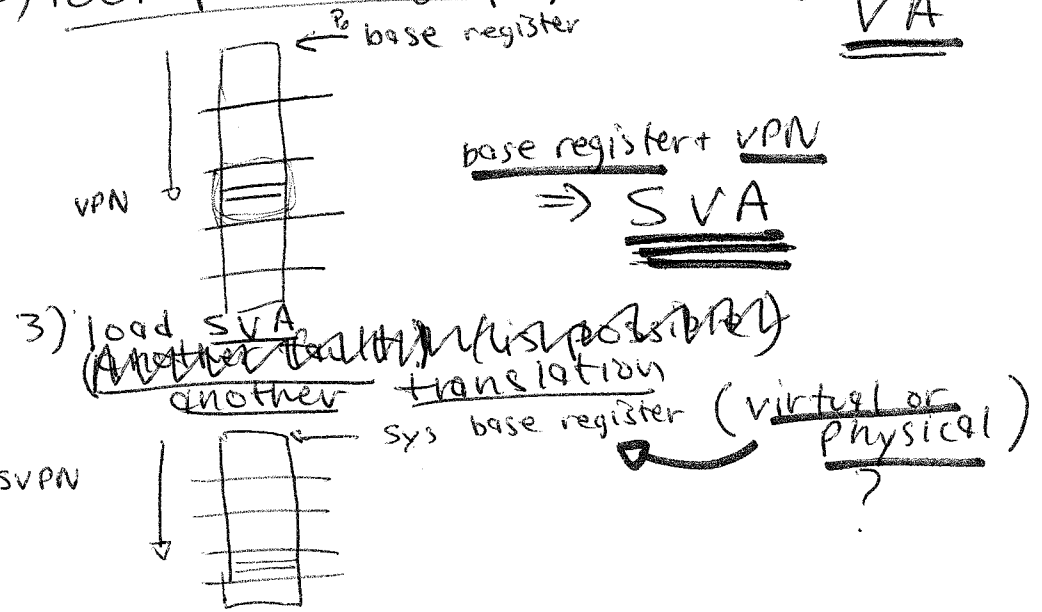 VA
P0 base register
base register + VPN
⇒ SVA
VPN
3) load SVA
another translation
sys base register (virtual or
physical)
?
SVPN